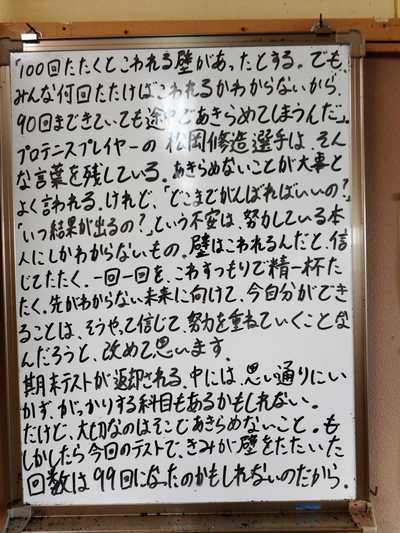 「100回たたくとこわれる壁があったとする。でも、
みんな何回たたけばこわれるかわからないから、
90回まできていても途中であきらめてしまうんだ」
プロテニスプレイヤーの松岡修造選手は、そん
な言葉を残している。あきらめないことが大事と
よく言われる。けれど、「どこまでがんばればいいの?」
「いつ結果が出るの?」という不安は、努力している本
人にしかわからないもの。壁はこわれるんだと、信
じてたたく。一回一回を、こわすつもりで精一杯た
たく。先がわからない未来に向けて、今自分ができ
ることは、そうやって信じて、努力を重ねていくことな
んだろうと、改めて思います。
期末テストが返却される。中には、思い通りにい
かず、がっかりする科目もあるかもしれない。
だけど、大切なのはそこであきらめないこと。も
しかしたら今回のテストで、きみが壁をたたいた
回数は99回になったのかもしれないのだから。